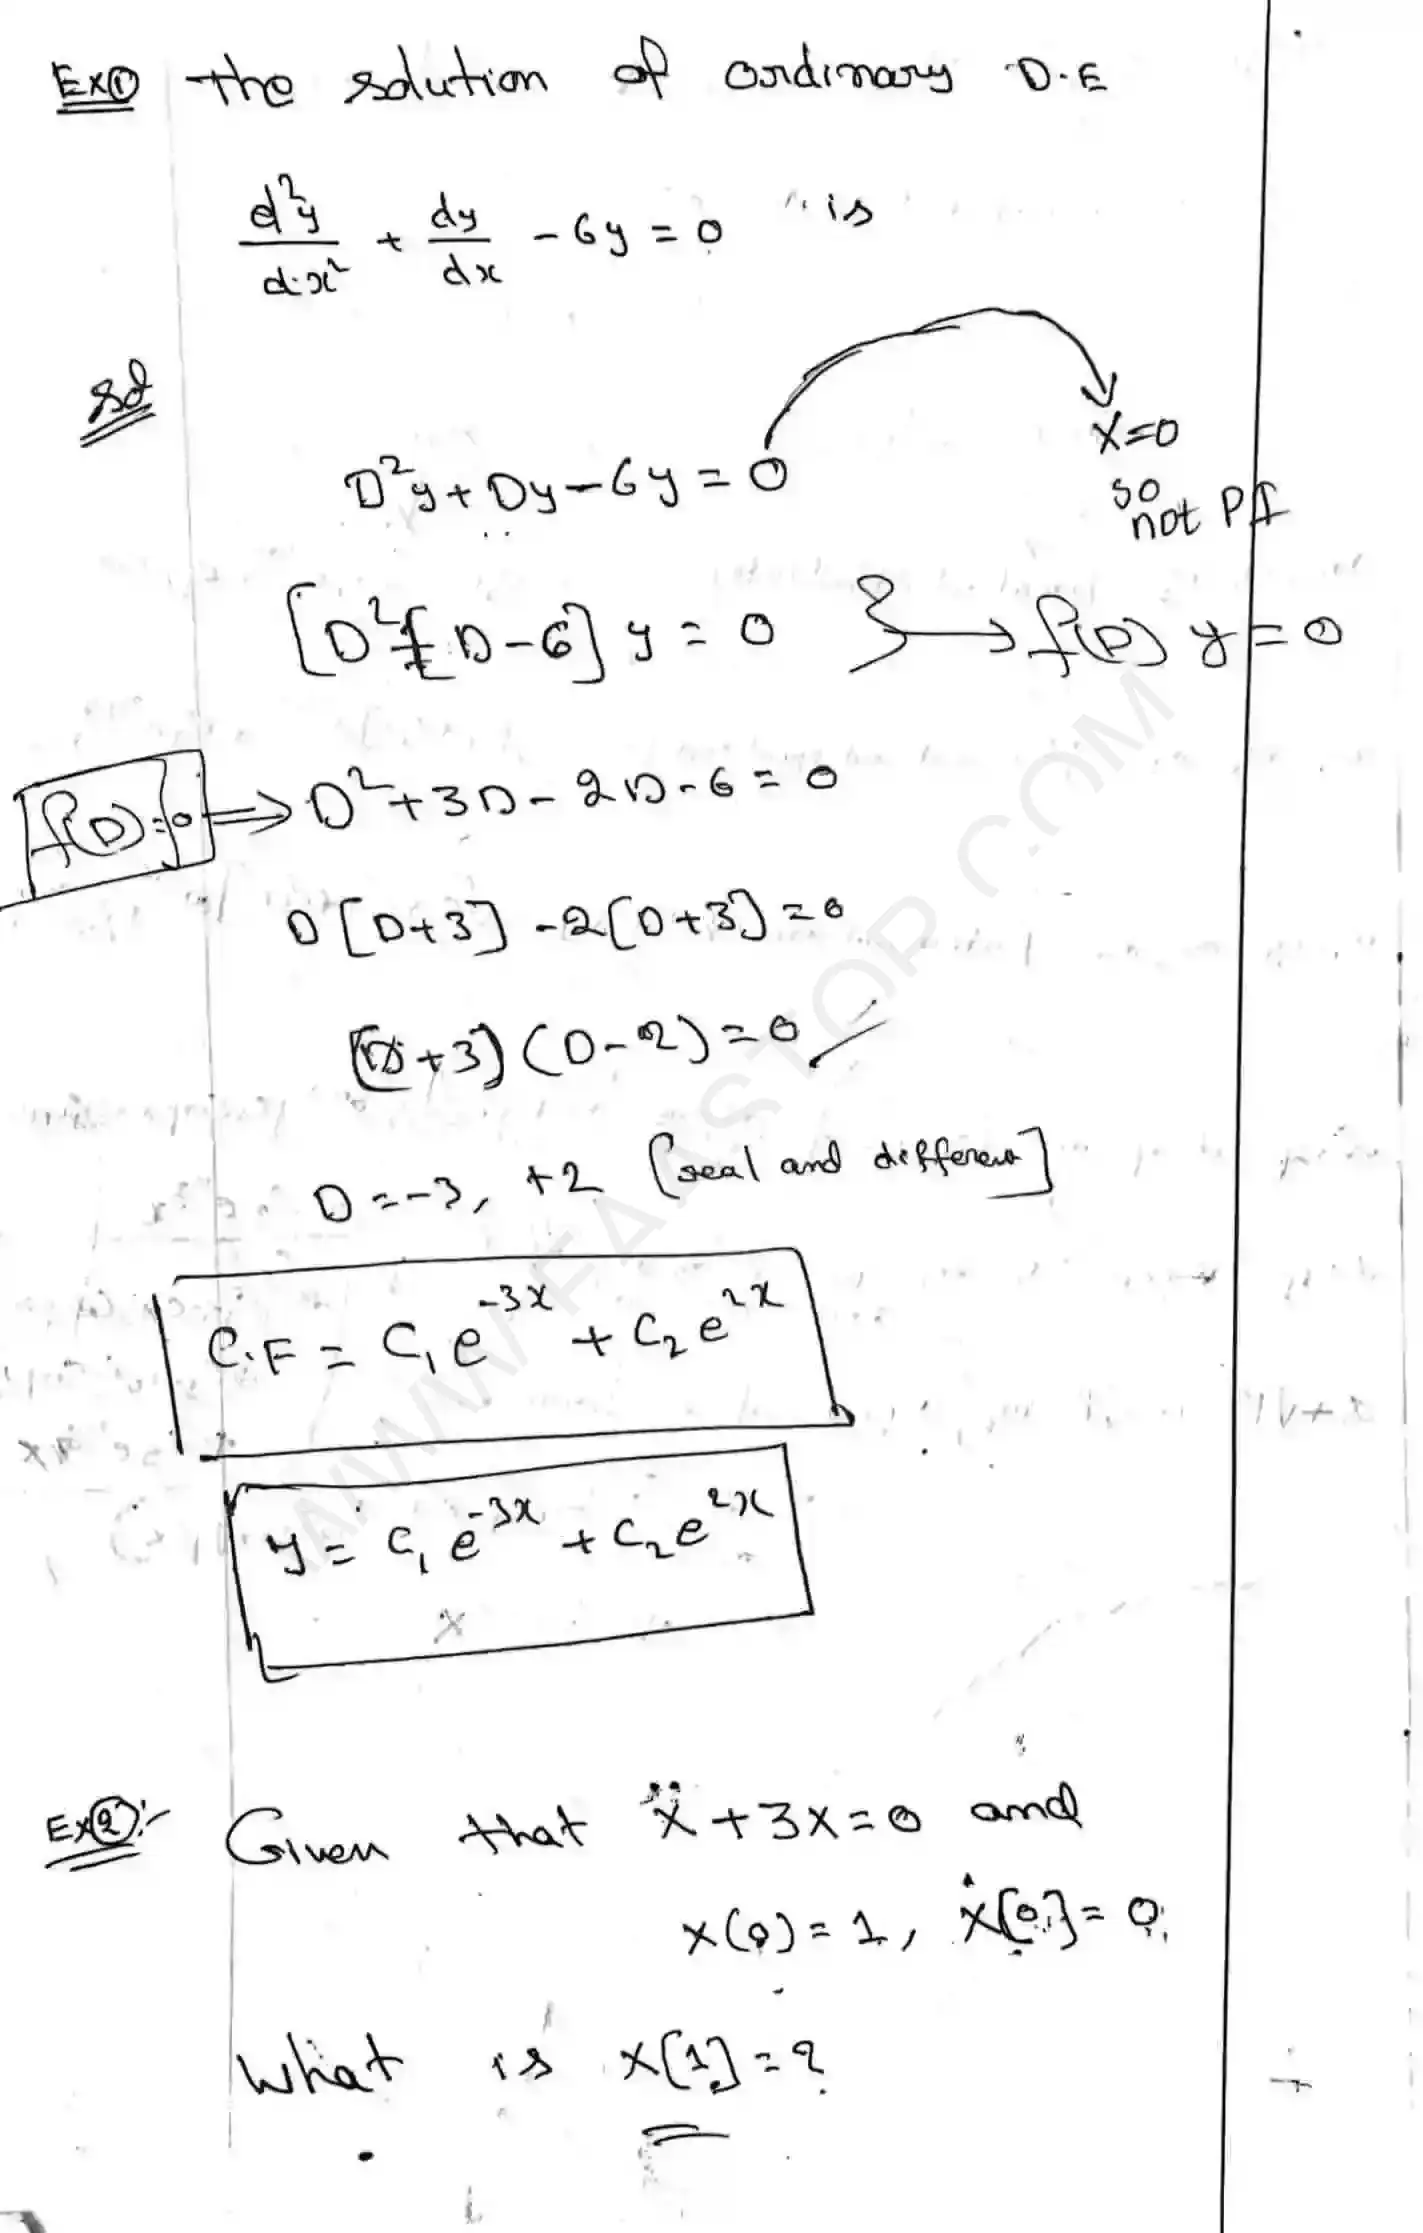 Ex① The solution of ordinary D.E
d²y/dx² + dy/dx - 6y = 0 is
Sol
X=0
so
not PI
D²y + Dy - 6y = 0
[D² + D - 6] y = 0 } → f(D) y = 0
f(D)=0 ⇒ D² + 3D - 2D - 6 = 0
D[D+3] - 2[D+3] = 0
(D+3) (D-2) = 0
D = -3, +2 [real and different]
C.F = C₁ e^-3x + C₂ e^2x
y = C₁ e^-3x + C₂ e^2x
Ex②:- Given that ẍ + 3x = 0 and
x(0) = 1, ẋ[0] = 0,
What is x[1] = ?
WWW.FAASTOP.COM